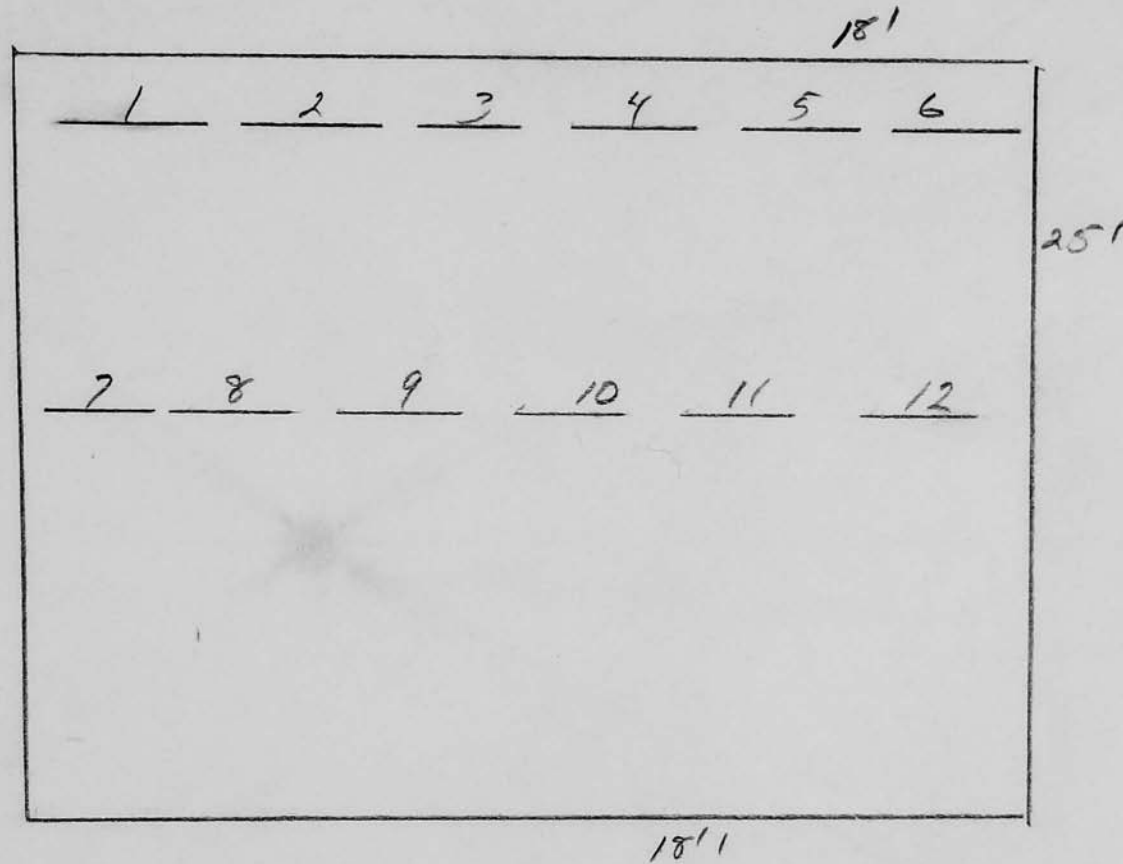 18'
1 2 3 4 5 6
25'
7 8 9 10 11 12
18' 1